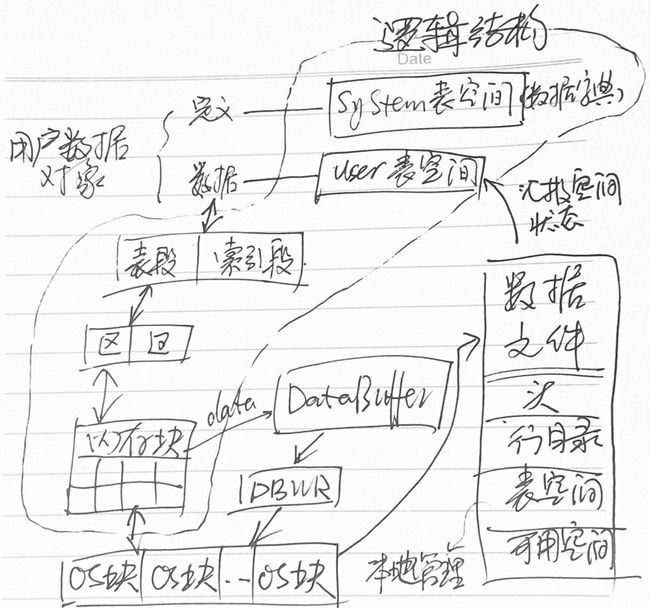 逻辑结构
Date
定义
System表空间
(数据字典)
用户数据
对象
数据
user表空间
汇报空间
状态
表段
索引段
区
区
数据
文件
data
DataBuffer
内存块
头
行目录
DBWR
表空间
本地管理
可用空间
OS块
OS块
..
OS块